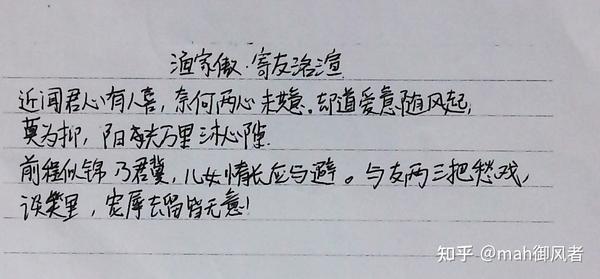 渔家傲·寄友洛渲
近闻君心有人喜，奈何两心未如意。却道爱意随风起，
莫为抑，阳光万里沐心隙.
前程似锦乃君冀，儿女情长应与避。与友两三把愁戏，
谈笑里，宠辱去留皆无意！
知乎 @mah御风者